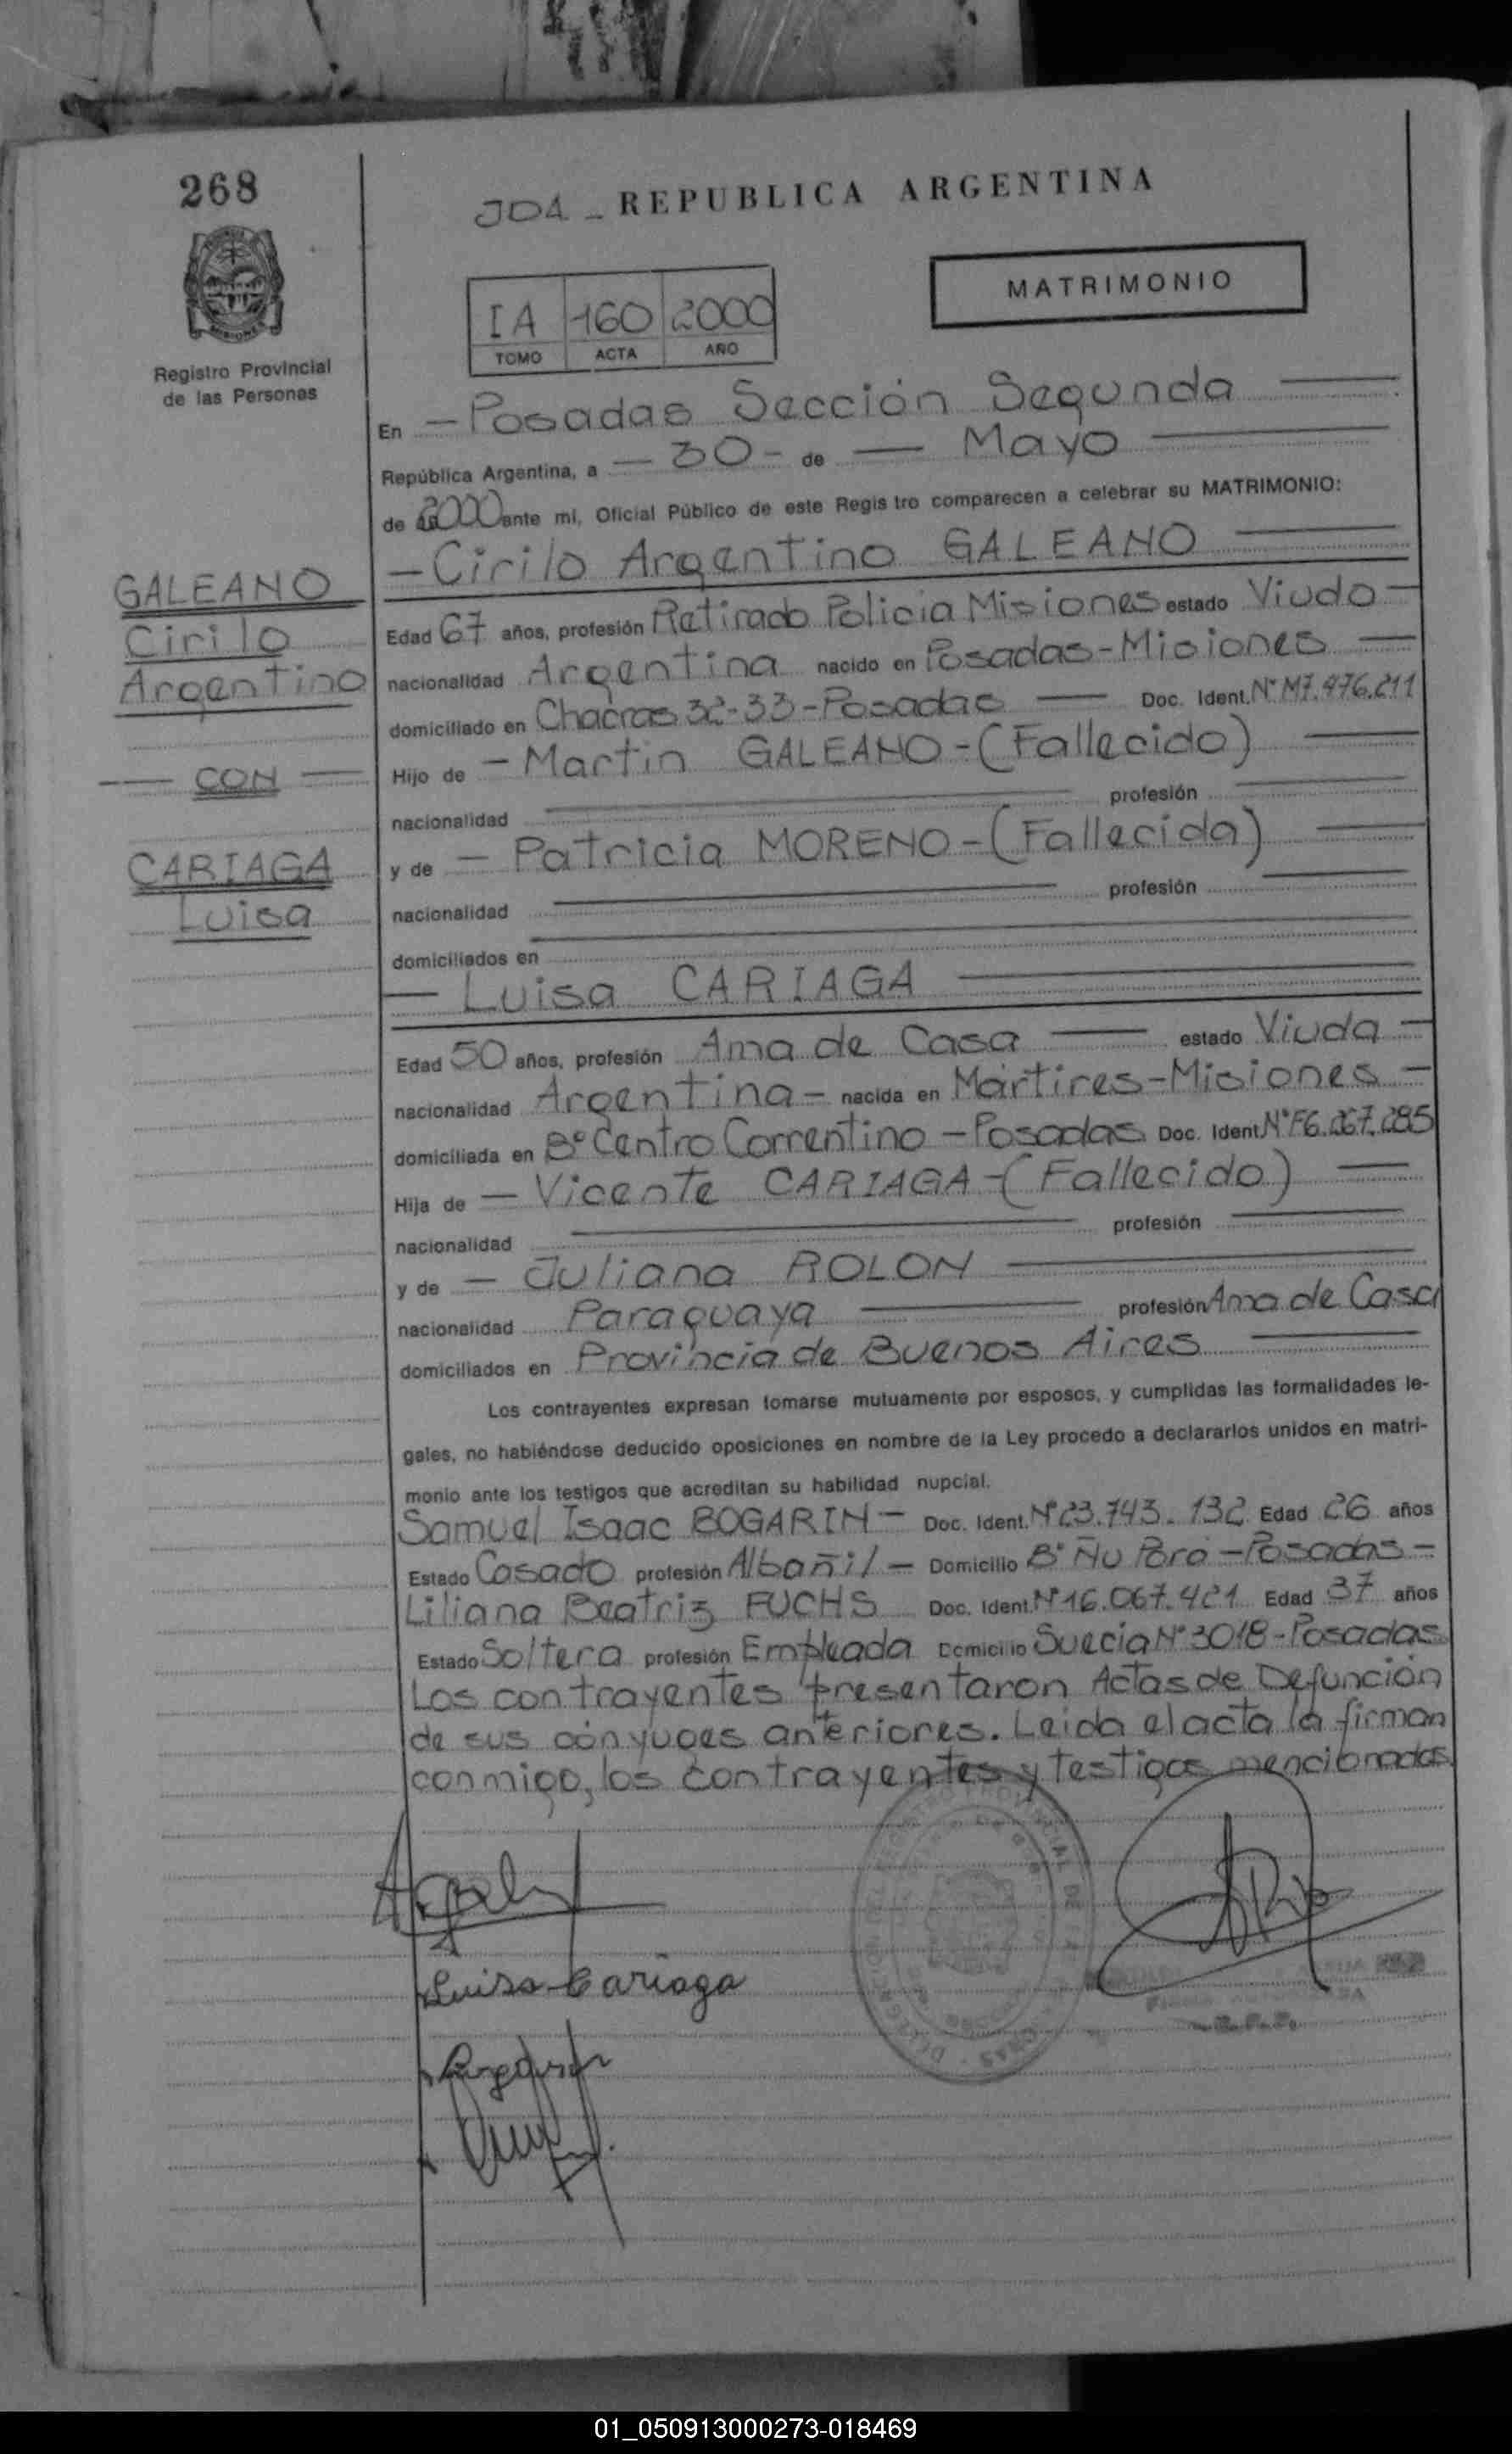 268
JOA - REPUBLICA ARGENTINA
MATRIMONIO
IA 160 2000
TOMO ACTA AÑO
MISIONES
Registro Provincial
de las Personas
En — Posadas Sección Segunda —
República Argentina, a — 30 - de — Mayo —
de 2000 ante mi, Oficial Público de este Registro comparecen a celebrar su MATRIMONIO:
— Cirilo Argentino GALEANO —
GALEANO
Cirilo
Argentino
— CON —
CARIAGA
Luisa
Edad 67 años, profesión Retirado Policia Misiones estado Viudo —
nacionalidad Argentina nacido en Posadas-Misiones —
domiciliado en Chacras 32-33-Posadas — Doc. Ident. N° M7.476.211
Hijo de — Martin GALEANO - (Fallecido) —
nacionalidad — profesión —
y de — Patricia MORENO - (Fallecida) —
nacionalidad — profesión —
domiciliados en —
— Luisa CARIAGA —
Edad 50 años, profesión Ama de Casa — estado Viuda —
nacionalidad Argentina — nacida en Mártires-Misiones —
domiciliada en B° Centro Correntino - Posadas Doc. Ident. N° F6.267.285
Hija de — Vicente CARIAGA - (Fallecido) —
nacionalidad — profesión —
y de — Juliana ROLON —
nacionalidad Paraguaya — profesión Ama de Casa
domiciliados en Provincia de Buenos Aires —
Los contrayentes expresan tomarse mutuamente por esposos, y cumplidas las formalidades le-
gales, no habiéndose deducido oposiciones en nombre de la Ley procedo a declararlos unidos en matri-
monio ante los testigos que acreditan su habilidad nupcial.
Samuel Isaac BOGARIN — Doc. Ident. N° 23.743.132 Edad 26 años
Estado Casado profesión Albañil — Domicilio B° Ñu Porá - Posadas —
Liliana Beatriz FUCHS Doc. Ident. N° 16.067.421 Edad 37 años
Estado Soltera profesión Empleada Domicilio Suecia N° 3018 - Posadas
Los contrayentes presentaron Actas de Defunción
de sus cónyuges anteriores. Leida el acta la firman
conmigo, los contrayentes y testigos mencionados.
Luisa Cariaga
01_050913000273-018469